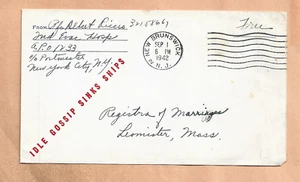 FROM Pfc Albert 32158669
2nd Evac Hosp
A.P.O. 1233
c/o Postmaster
New York City, N.Y.
NEW BRUNSWICK
SEP 1
6 PM
1942
N.J.
Free
IDLE GOSSIP SINKS SHIPS
Registra of Marriages
Leominster, Mass.